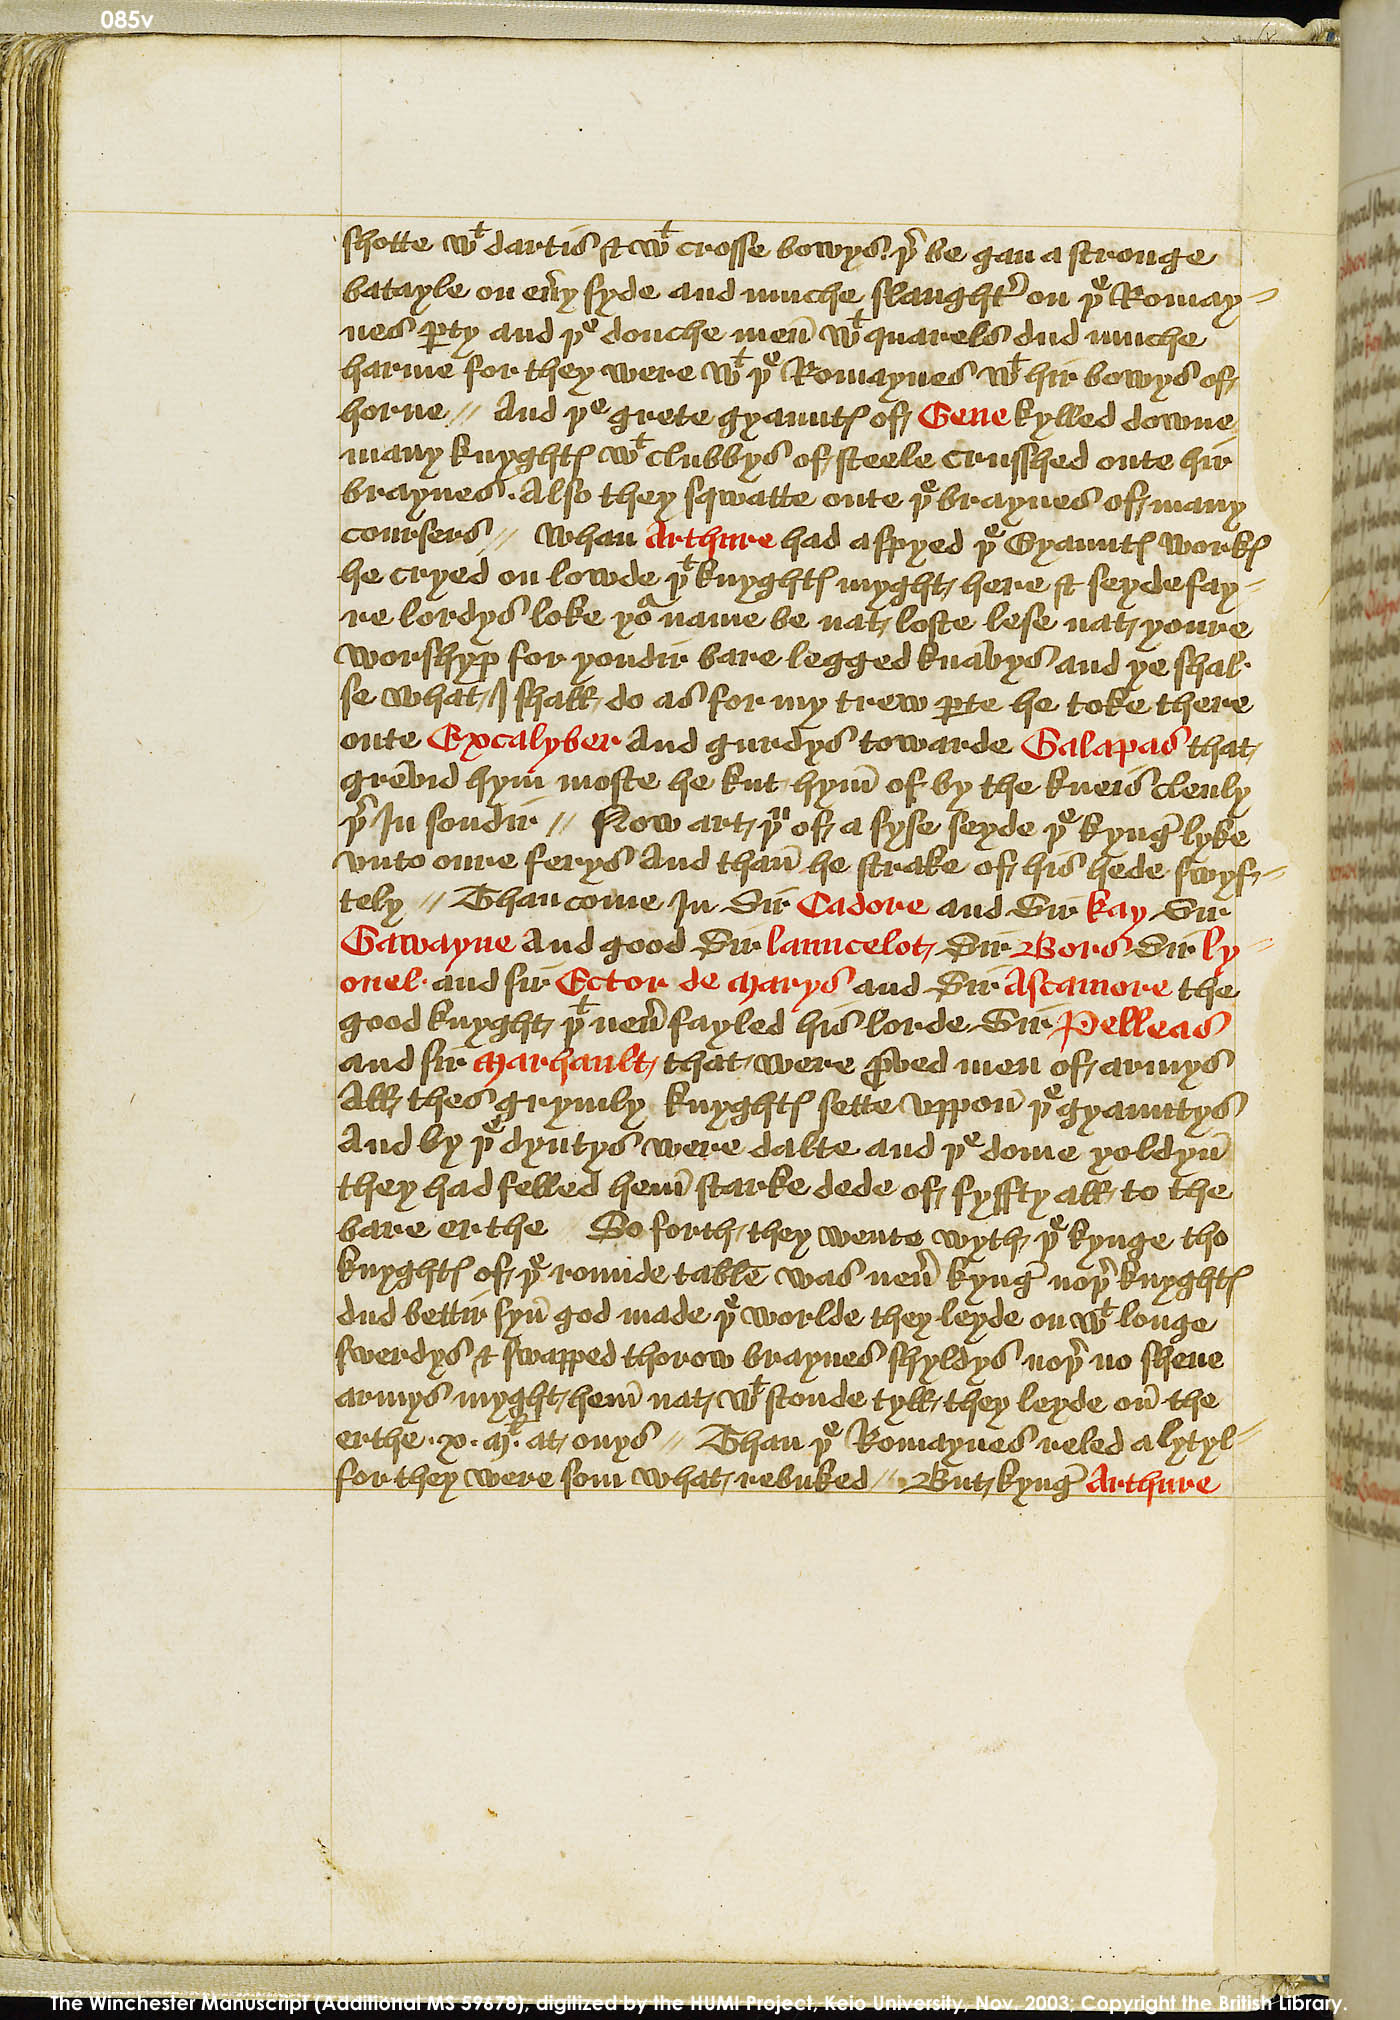 085v
shotte wᵗ dartis & wᵗ crosse bowys. þʳ be gan a stronge
batayle on euʳy syde and muche slaughtʳ on þᵉ Romay⸗
nes ꝑty and þᵉ douche men̄ wᵗ quarels dud muche
harme for they were wᵗ þᵉ Romaynes wᵗ hir bowys of
horne // And þᵉ grete gyauntꝭ of Gene kylled downe
many knyghtꝭ wᵗ clubbys of steele crusshed oute hir
braynes. Also they sqwatte oute þᵉ braynes of many
coursers // Whan Arthure had aspyed þᵉ Gyauntꝭ workꝭ
he cryed on lowde þᵗ knyghtꝭ myght here & seyde fay⸗
re lordys loke yoᵃ name be nat loste lese nat youre
worshyp for yondir bare legged knavys and ye shal
se what I shall do as for my trew ꝑte he toke there
oute Excalyber And gurdys towarde Galapas that
grevid hym moste he kut hym̄ of by the kneis clenly
þʳ In sondir // Now art þᵘ of a syse seyde þᵉ kyngē lyke
vnto oure ferys And than̄ he strake of his hede swyf⸗
tely // Than come In Sir Cadore and Sir kay Sir
Gawayne And good Sir launcelot Sir Bors Sir ly⸗
onel. and sir Ector de Marys and Sir Ascamore the
good knyght þᵗ neuʳ fayled his lorde Sir Pelleas
and sir Marhault that were ꝓved men of armys
All thes grymly knyghtꝭ sette vppon̄ þᵉ gyauntys
And by þᵉ dyntys were dalte and þᵉ dome yoldyn̄
they had felled hem̄ starke dede of fyffty all to the
bare erthe So forth they wente wyth þᵉ kynge tho
knyghtꝭ of þᵉ rounde table was neuʳ kyngē noþʳ knyghtꝭ
dud bettir syn̄ god made þᵉ worlde they leyde on wᵗ longe
swerdys & swapped thorow braynes shyldys noþʳ no shene
armys myght hem̄ nat wᵗ stonde tyll they leyde on̄ the
erthe. x. Mˡ. at onys // Than þᵉ Romaynes reled a lytyl⸗
for they were som what rebuked // But kyngē Arthure
The Winchester Manuscript (Additional MS 59678), digitized by the HUMI Project, Keio University, Nov. 2003; Copyright the British Library.